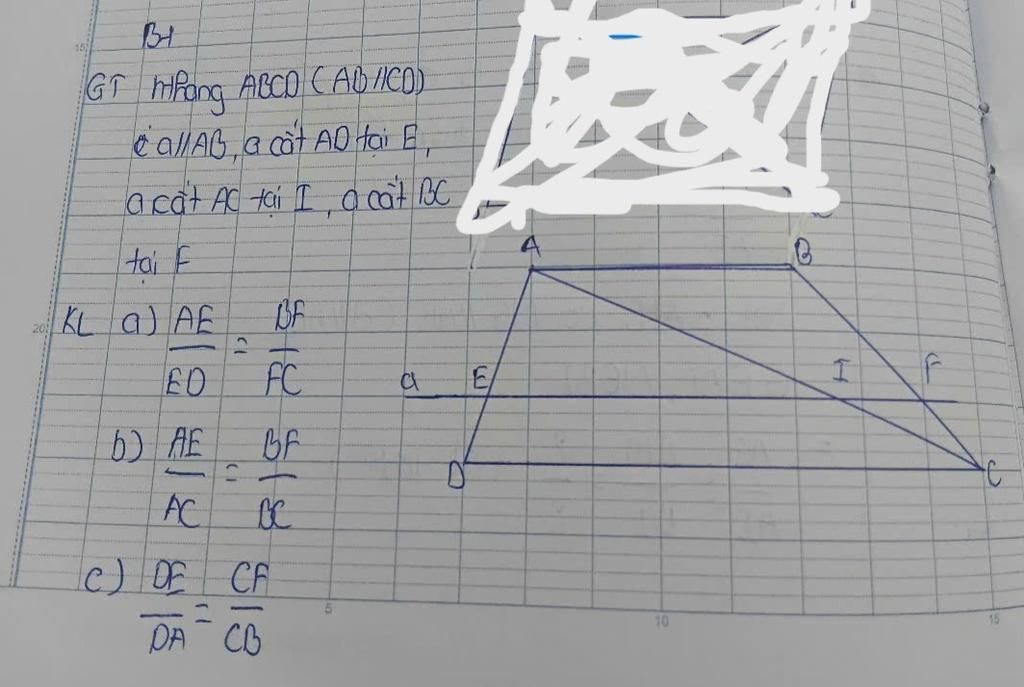 B1
GT hthang ABCD (AB//CD)
a//AB, a cắt AD tại E,
a cắt AC tại I, a cắt BC
tại F
KL a) AE/ED = BF/FC
b) AE/AC = BF/BC
c) DE/DA = CF/CB
A B
a E I F
D C
20
15
5 10 15